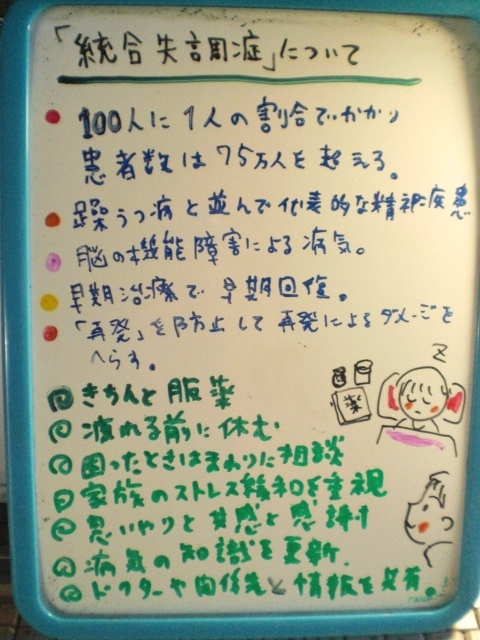 「統合失調症」について
100人に1人の割合でかかり
患者数は75万人を超える。
躁うつ病と並んで代表的な精神疾患
脳の機能障害による病気。
早期治療で早期回復。
「再発」を防止して再発によるダメージを
へらす。
きちんと服薬
疲れる前に休む
困ったときはまわりに相談
家族のストレス緩和を重視
思いやりと共感と感謝
病気の知識を更新.
ドクターや関係先と情報を共有。
薬
Z